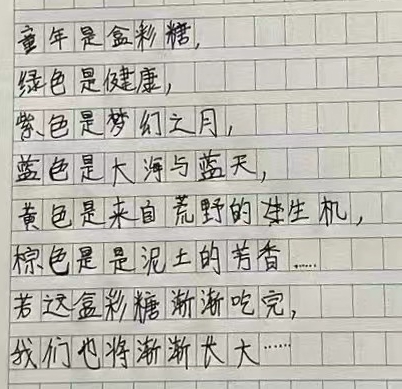 童年是盒彩糖,
绿色是健康,
紫色是梦幻之月,
蓝色是大海与蓝天,
黄色是来自荒野的生机,
棕色是是泥土的芳香……
若这盒彩糖渐渐吃完,
我们也将渐渐长大……